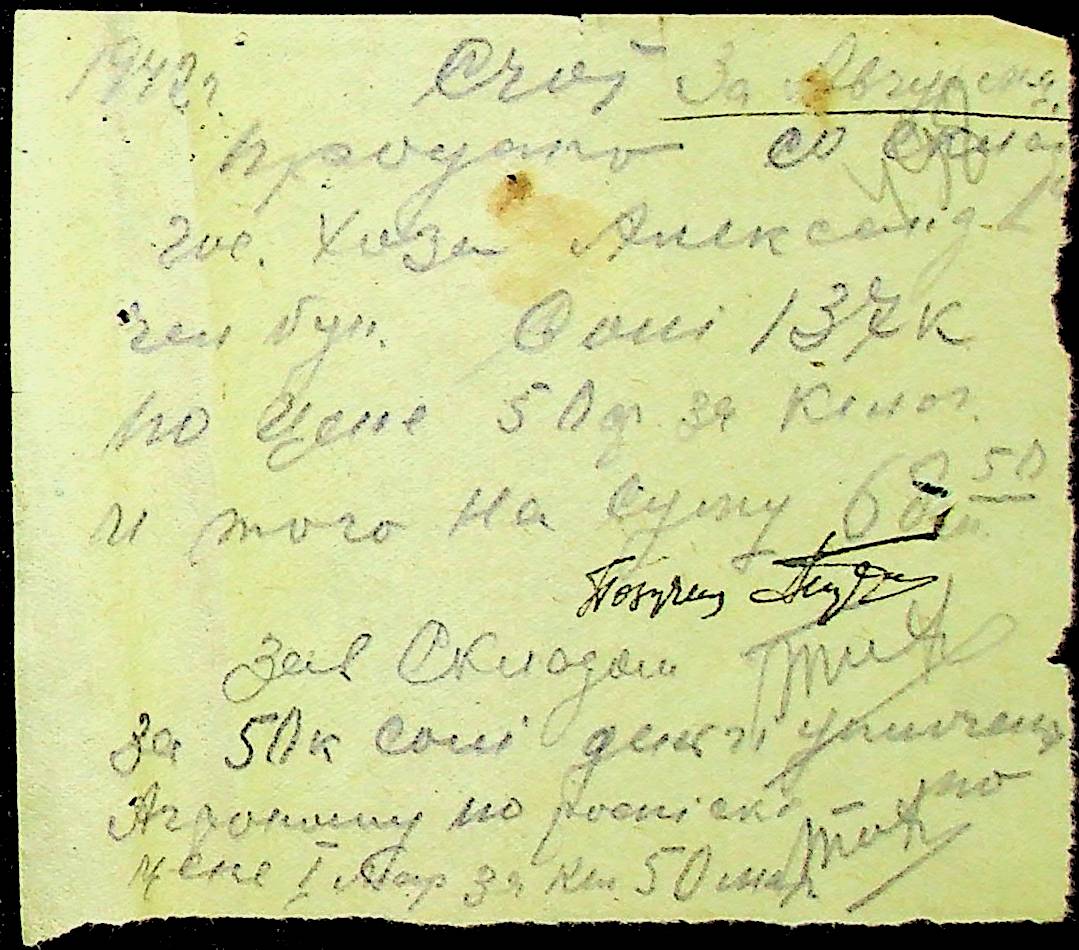 1942 г. Счет За Август м.
Продано со склад
гос. Хоза Александ
чен бур. Соли 137 к
по Цене 50 ф за Килог.
И того на сумму 68 м. 50
Получил
Зав Складом
За 50 к соли деньги уплочены
Агроному по росписке по
цене 1 Мар за кг 50 мар